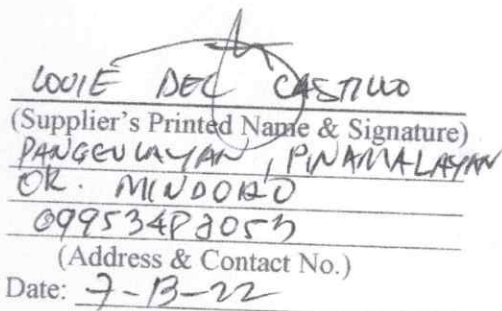 LOUIE DEL CASTILLO
(Supplier's Printed Name & Signature)
PANGGULAYAN, PINAMALAYAN
OR. MINDORO
(Address & Contact No.)
Date: 7-13-22